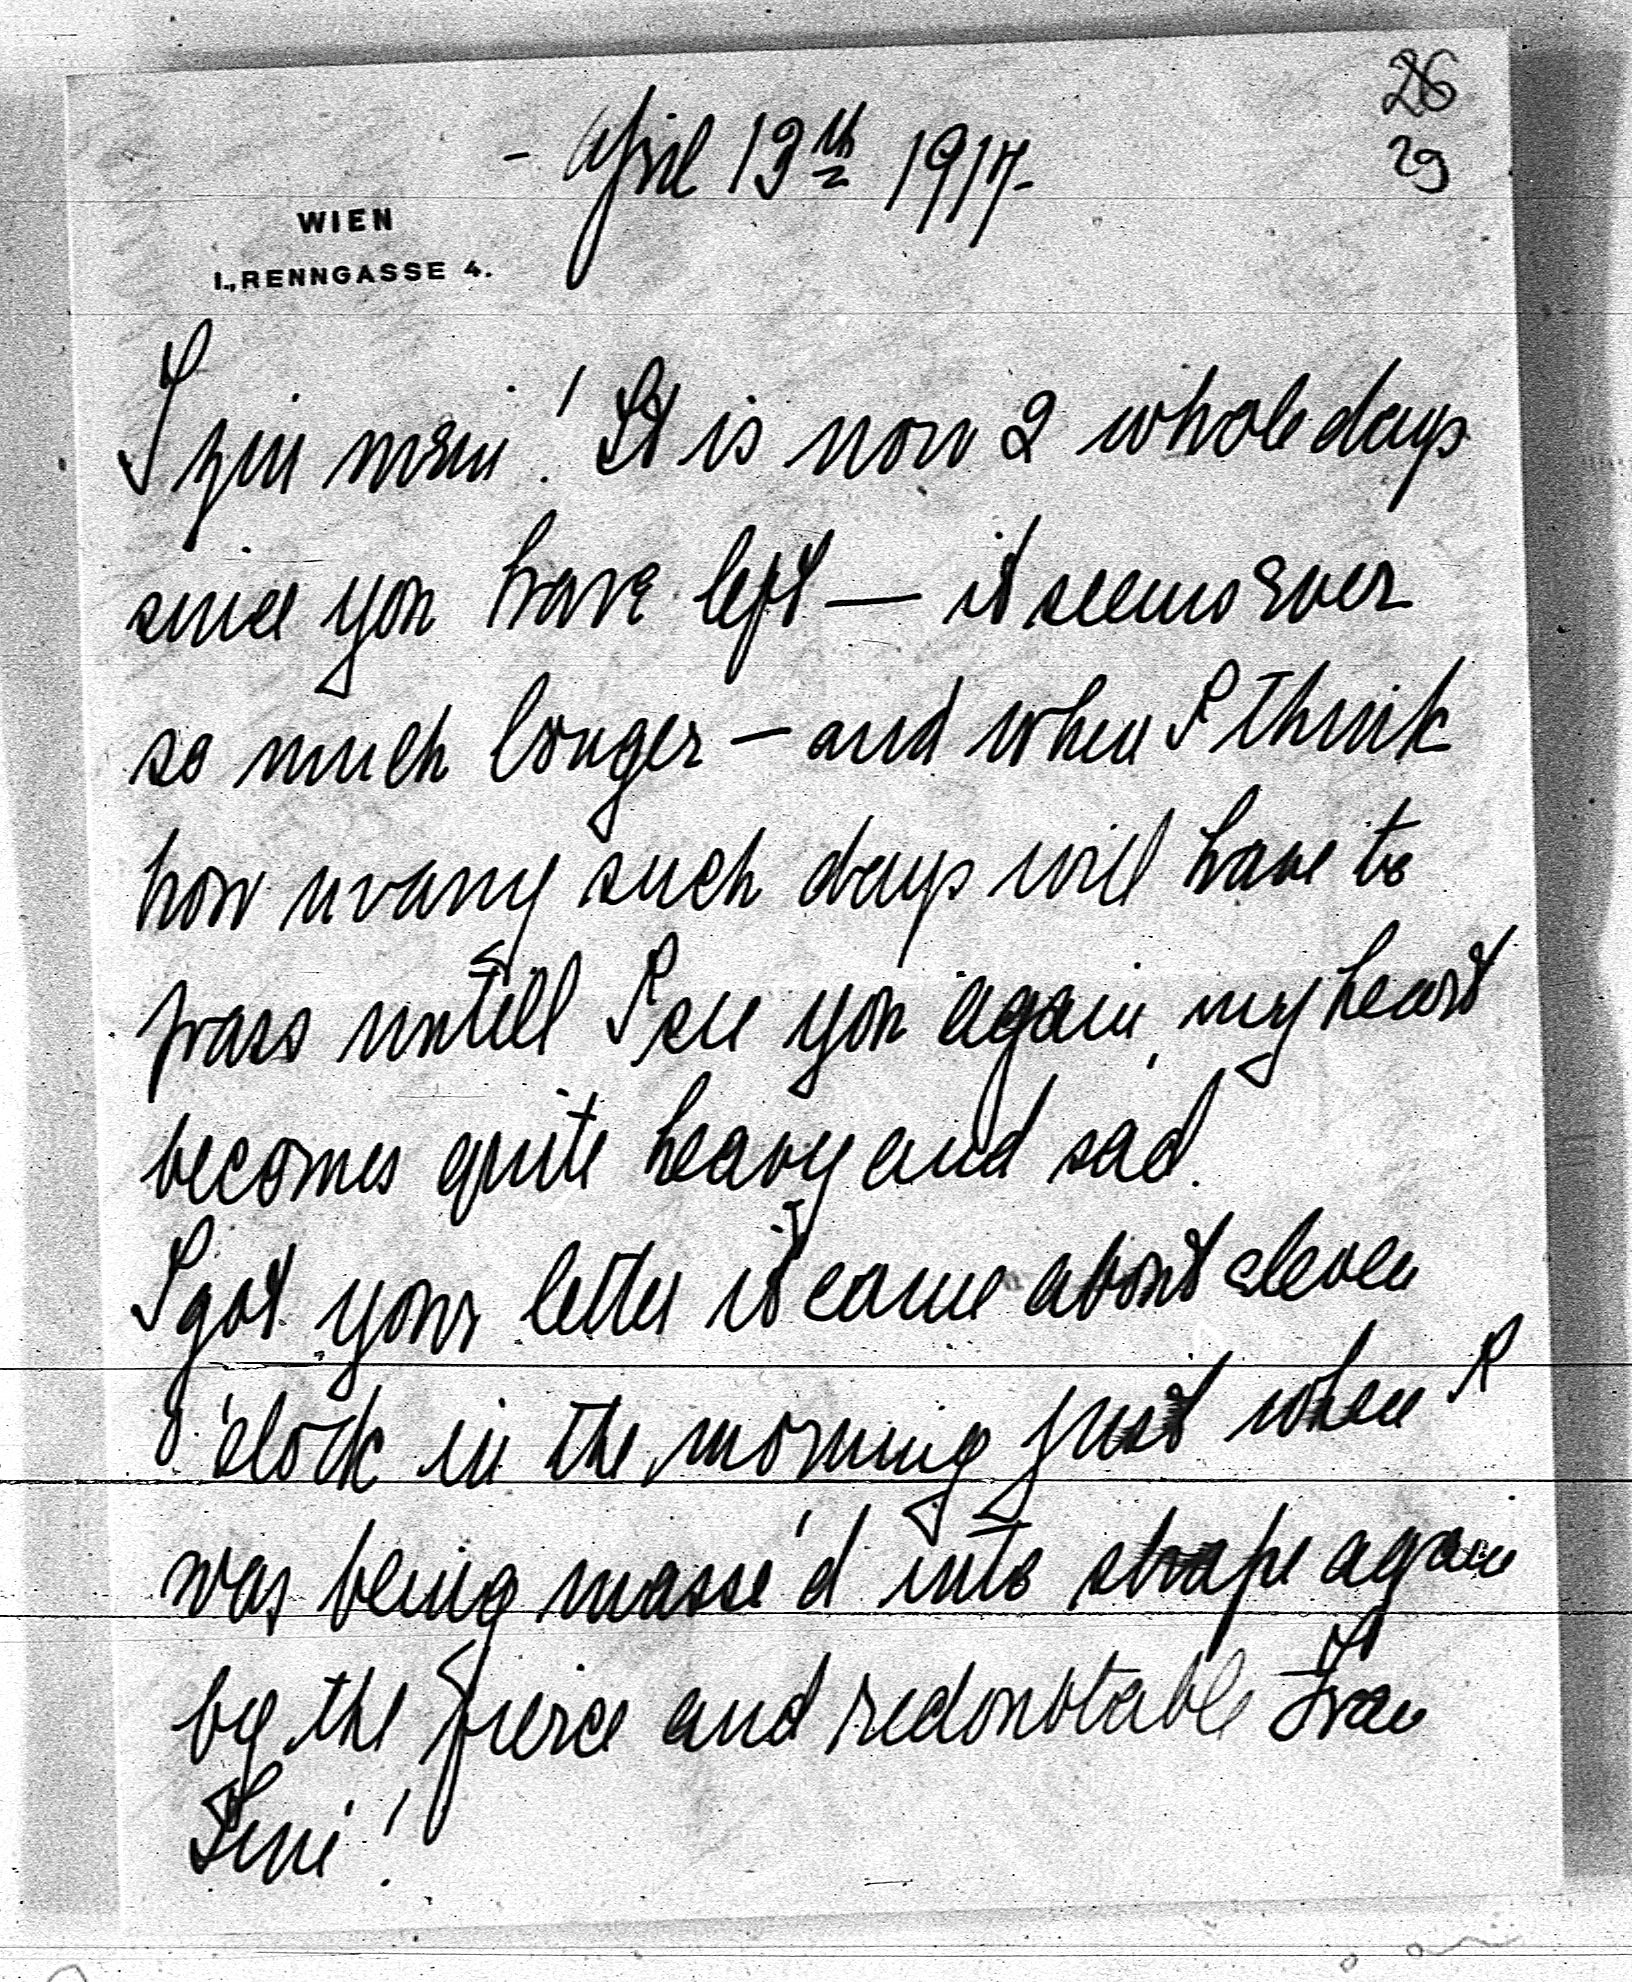 26
29
- April 13th 1917-
WIEN
I., RENNGASSE 4.
mein! It is now 2 whole days
since you have left — it seems ever
so much longer — and when I think
how many such days will have to
pass untill I see you again, my heart
becomes quite heavy and sad.
I got your letter it came about eleven
o'clock in the morning just when I
was being masse'd into shape again
by the fierce and redoubtable Frau